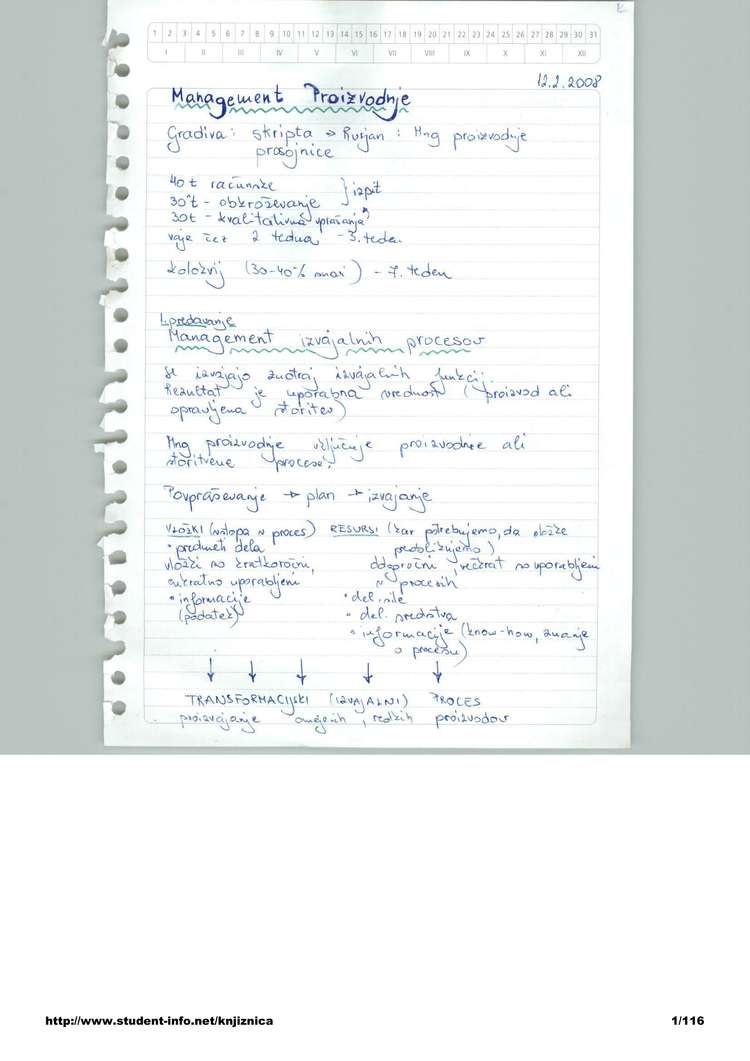 1 2 3 4 5 6 7 8 9 10 11 12 13 14 15 16 17 18 19 20 21 22 23 24 25 26 27 28 29 30 31
I II III IV V VI VII VIII IX X XI XII
12.2.2008
Management Proizvodnje
Gradiva: skripta → Rusjan : Mng proizvodnje
prosojnice
40 t računske
30 t - obkroževanje } izpit
30t - kvalitativna vprašanja
vaje čez 2 tedna - 3. teden
kolokvij (30-40% snovi) - 7. teden
1. predavanje
Management izvajalnih procesov
Se izvajajo znotraj izvajalnih funkcij.
Rezultat je uporabna vrednost (proizvod ali
opravljena storitev)
Mng proizvodnje vključuje proizvodne ali
storitvene procese.
Povpraševanje → plan → izvajanje
VLOŽKI (vstopa v proces) RESURSI (kar potrebujemo, da vložke
• predmeti dela preoblikujemo)
vložki so kratkoročni, dolgoročni, večkrat so uporabljeni
enkratno uporabljeni v procesih
• informacije • del. sile
(podatek) • del. sredstva
• informacije (know-how, znanje
o procesu)
↓ ↓ ↓ ↓ ↓
TRANSFORMACIJSKI (IZVAJALNI) PROCES
proizvajanje omejenih, redkih proizvodov
http://www.student-info.net/knjiznica 1/116